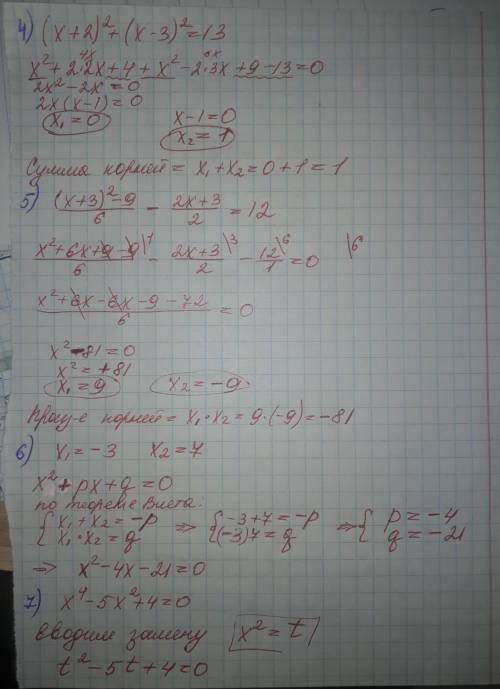 4) (x+2)²+(x-3)²=13
4x 6x
x²+2·2x+4+x²-2·3x+9-13=0
2x²-2x=0
2x(x-1)=0
x₁=0 x-1=0
x₂=1
Сумма корней = x₁+x₂=0+1=1
5) (x+3)²-9/6 - 2x+3/2 = 12
x²+6x+9-9\¹/6 - 2x+3\³/2 - 12\⁶/1 = 0 \6
x²+6x-6x-9-72/6 = 0
x²-81=0
x²=+81
x₁=9 x₂=-9.
Произ-е корней = x₁·x₂=9·(-9)=-81
6) x₁=-3 x₂=7
x²+px+q=0
по теореме Виета:
{x₁+x₂=-p => {-3+7=-p => {p=-4
{x₁·x₂=q {(-3)7=q {q=-21
=> x²-4x-21=0
7) x⁴-5x²+4=0
Вводим замену x²=t
t²-5t+4=0